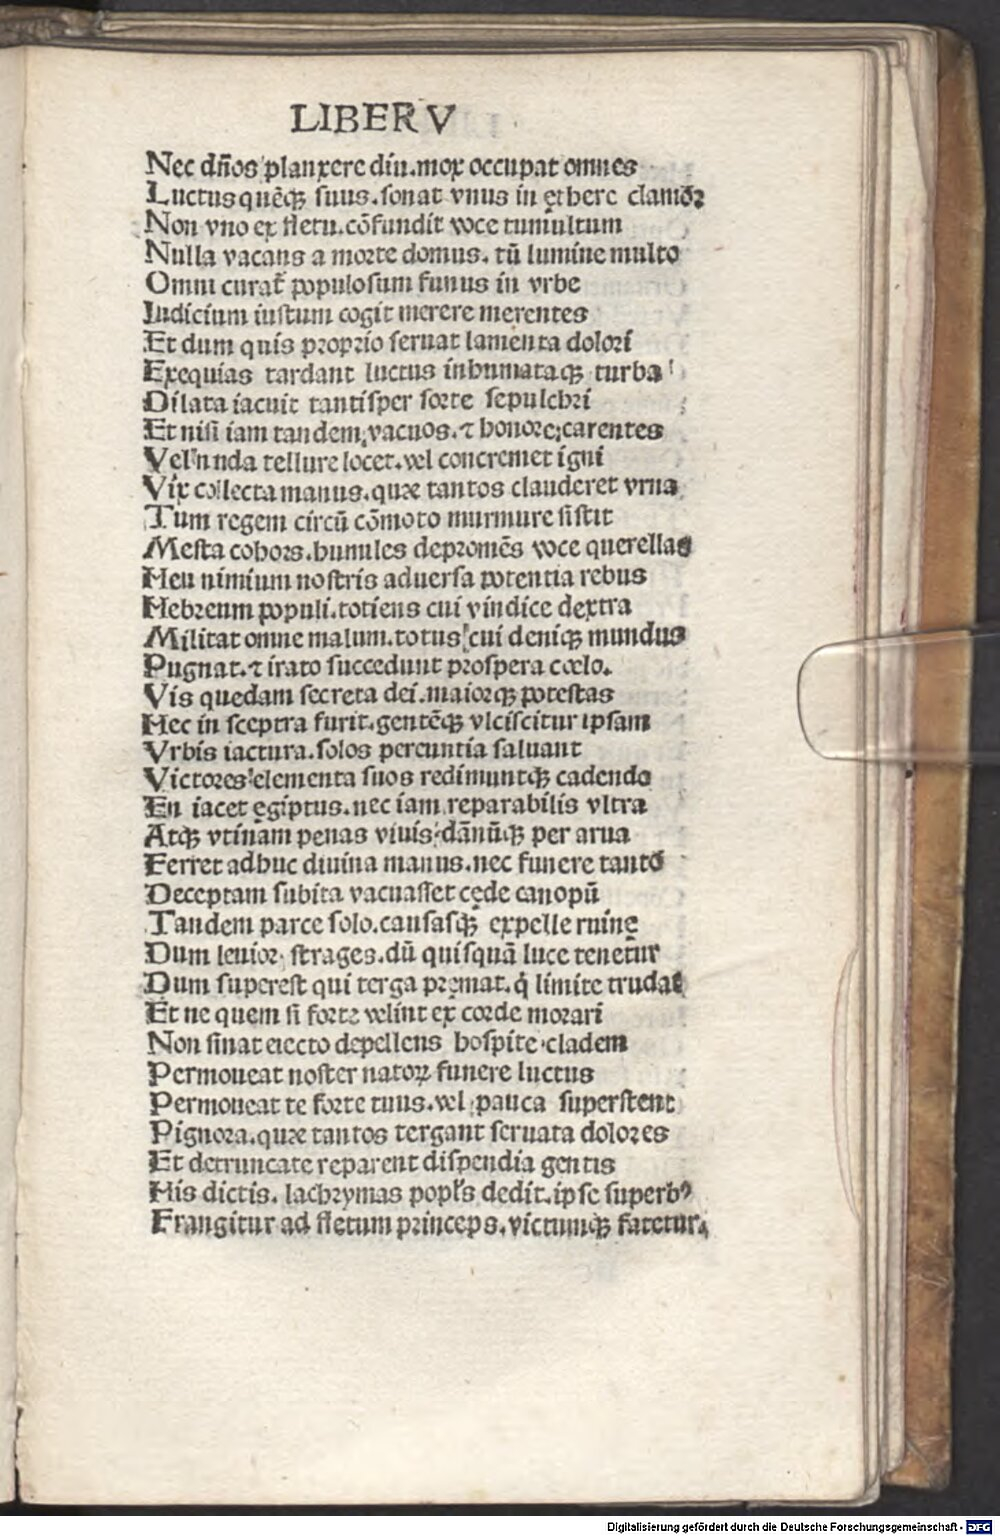 LIBER V
Nec dn̄os planxere diu.mox occupat omnes
Luctus quēqꝫ suus.sonat vnus in ęthere clamoꝛ
Non vno ex fletu.cōfundit voce tumultum
Nulla vacans a moꝛte domus. tū lumine multo
Omni curat̄ populosum funus in vrbe
Iudicium iustum cogit merere merentes
Et dum quis pꝛopꝛio seruat lamenta dolori
Exequias tardant luctus inhumataqꝫ turba
Dilata iacuit tantisper soꝛte sepulchri
Et nisi iam tandem vacuos.⁊ honoꝛe carentes
Vel nuda tellure locet.vel concremet igni
Vix collecta manus.quæ tantos clauderet vrna
Tum regem circū cōmoto murmure sistit
Mesta cohoꝛs.humiles depꝛomēs voce querellas
Heu nimium nostris aduersa potentia rebus
Hebreum populi.totiens cui vindice dextra
Militat omne malum.totus cui deniqꝫ mundus
Pugnat.⁊ irato succedunt pꝛospera cœlo.
Vis quedam secreta dei.maioꝛqꝫ potestas
Hec in sceptra furit.gentēqꝫ vlciscitur ipsam
Vrbis iactura.solos pereuntia saluant
Victoꝛes elementa suos redimuntqꝫ cadendo
En iacet ęgiptus.nec iam reparabilis vltra
Atqꝫ vtinam penas viuis dānūqꝫ per arua
Ferret adhuc diuina manus.nec funere tanto
Deceptam subita vacuasset cęde canopū
Tandem parce solo.causasqꝫ expelle ruinę
Dum leuioꝛ strages.dū quisquā luce tenetur
Dum superest qui terga pꝛęmat.q̇ limite trudat
Et ne quem si foꝛte velint ex coꝛde moꝛari
Non sinat eiecto depellens hospite cladem
Permoueat noster natoꝝ funere luctus
Permoueat te foꝛte tuus.vel pauca superstent
Pignoꝛa.quæ tantos tergant seruata doloꝛes
Et detruncate reparent dispendia gentis
His dictis. lachꝛymas popl̄s dedit.ipse superbꝰ
Frangitur ad fletum pꝛinceps.victumqꝫ fatetur.
Digitalisierung gefördert durch die Deutsche Forschungsgemeinschaft - DFG